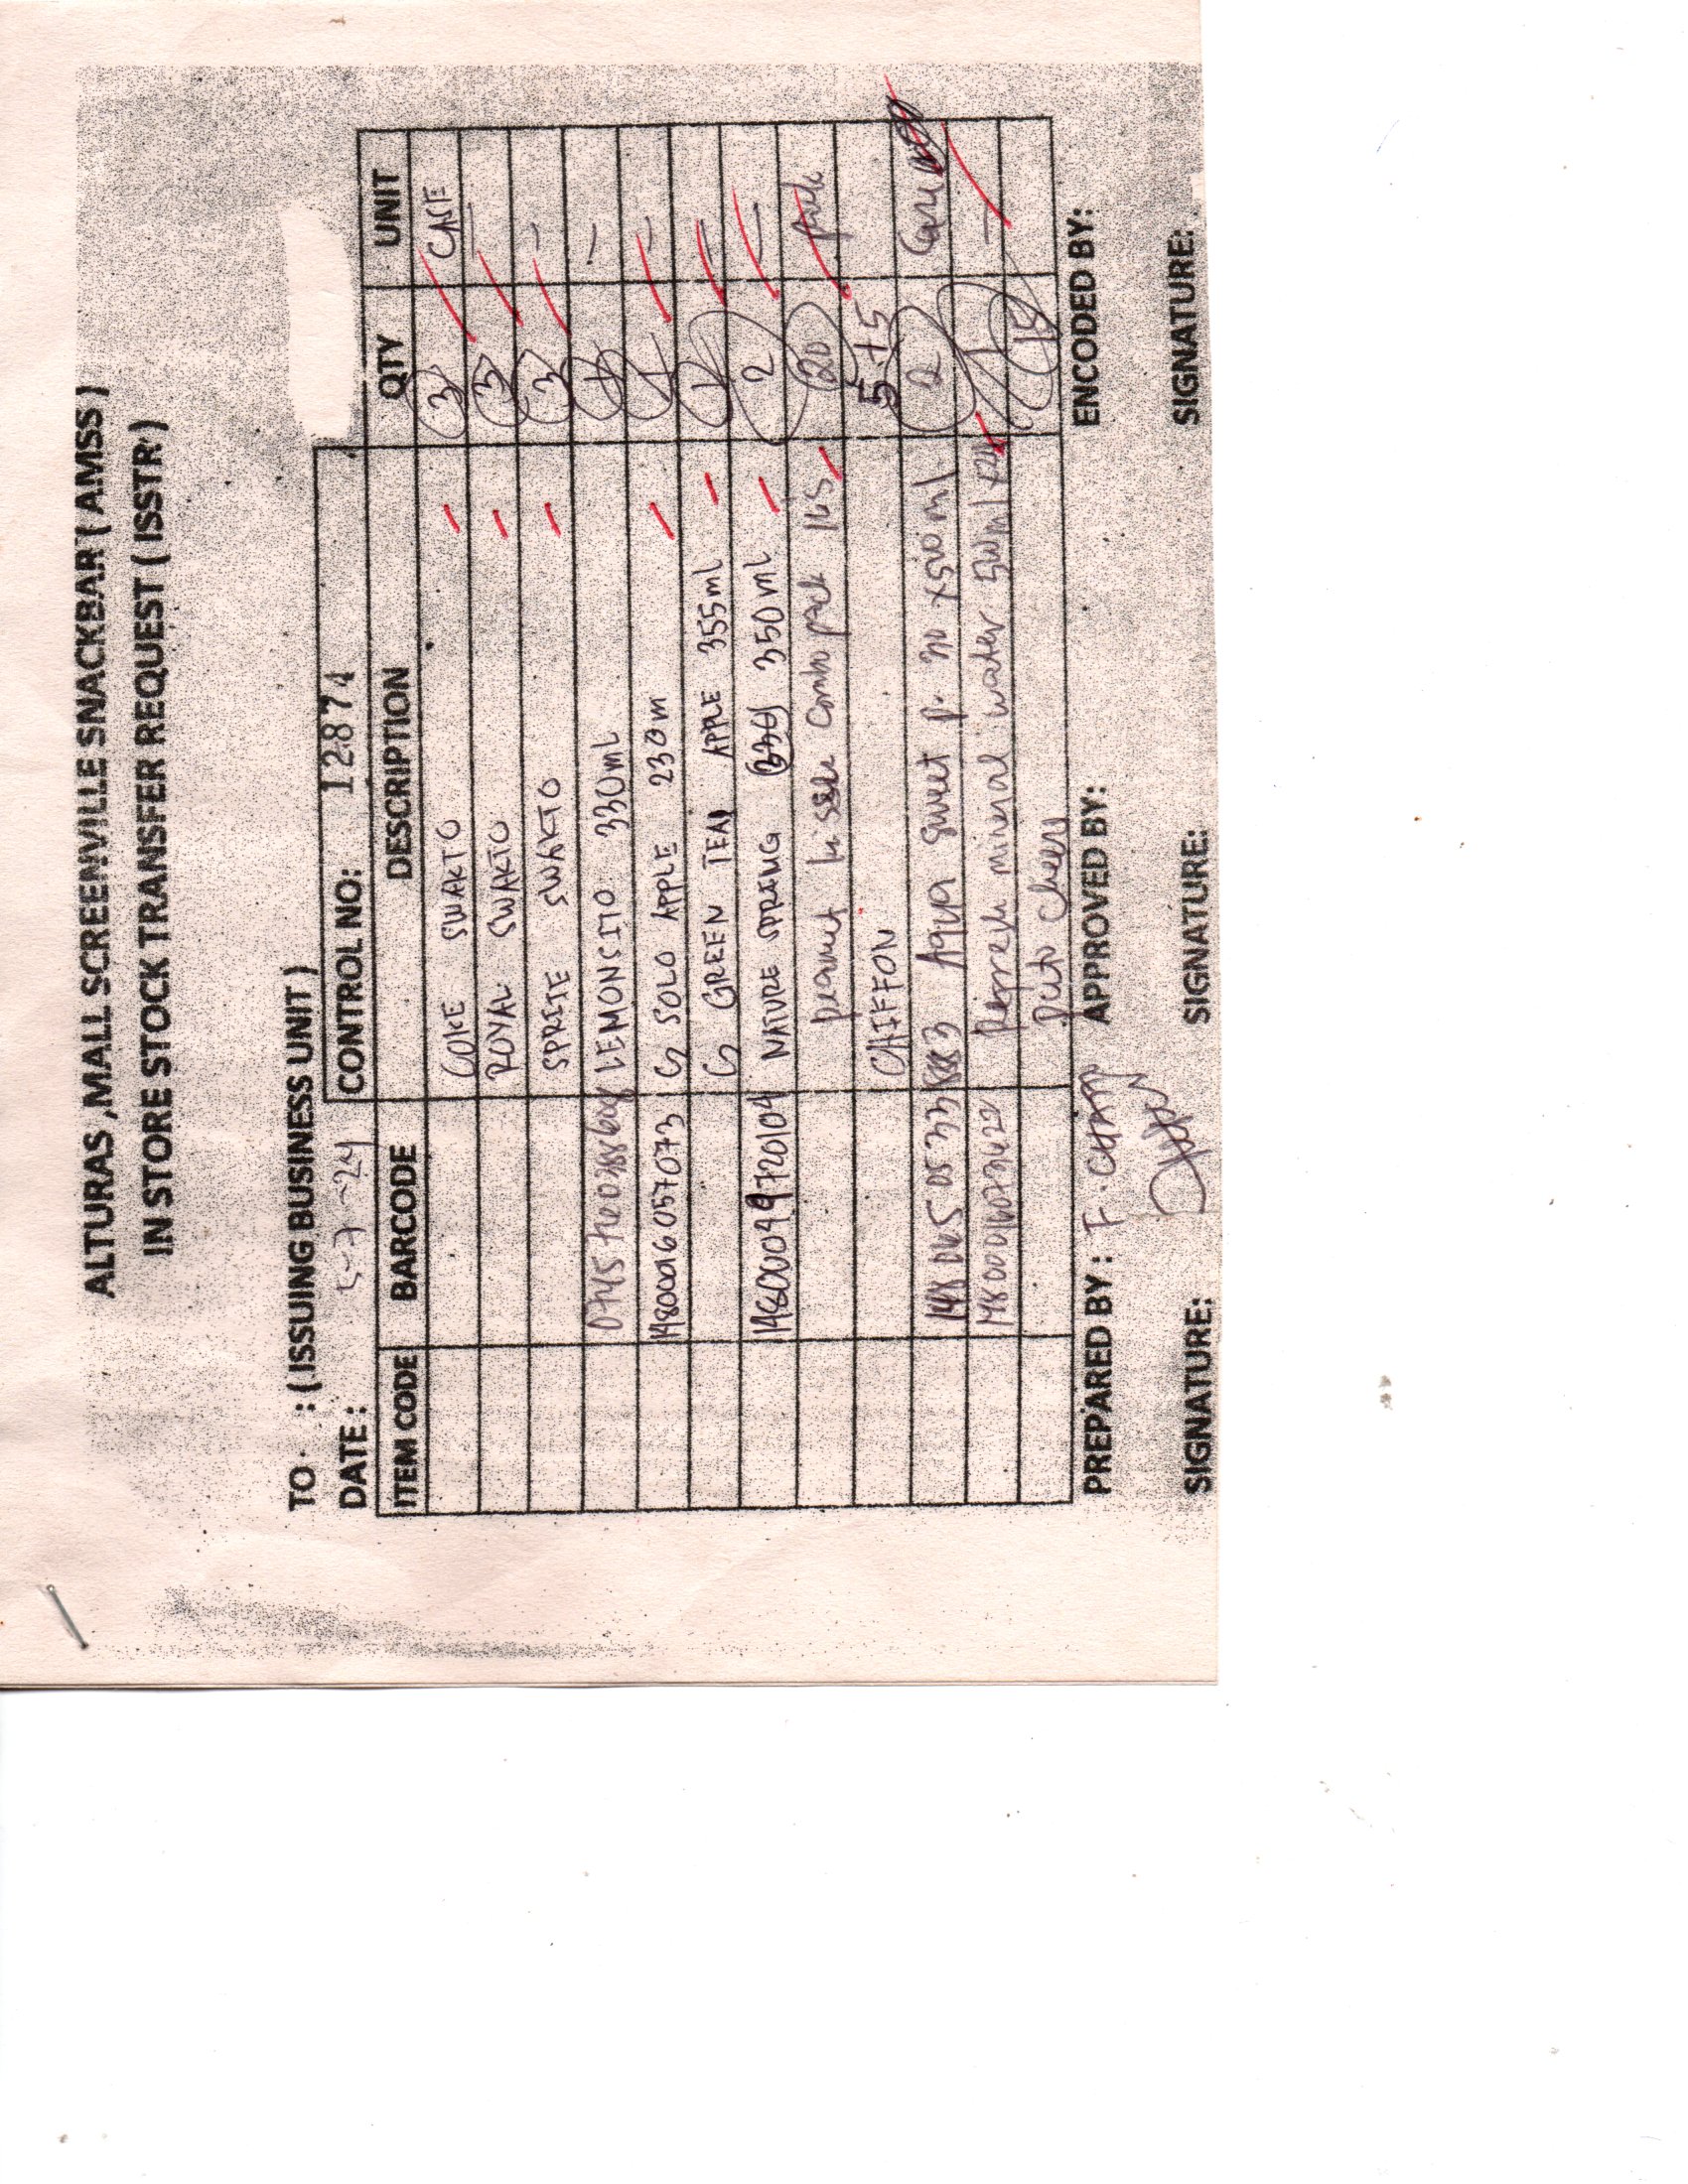 ALTURAS ,MALL SCREENVILLE SNACKBAR ( AMSS )
IN STORE STOCK TRANSFER REQUEST ( ISSTR )
TO : ( ISSUING BUSINESS UNIT )
DATE : 5-7-24 CONTROL NO: 12874
ITEM CODE BARCODE DESCRIPTION QTY UNIT
COKE SWAKTO 3 CASE
ROYAL SWAKTO 3 —
SPRITE SWAKTO 3 —
LEMONSITO 330ml —
14800016057073 C2 SOLO APPLE 230m 1 —
C2 GREEN TEA APPLE 355ml 1 —
14800049720104 NATURE SPRING 350ml 2 —
peanut kisses combo pack 16's 20 pack
CHIFFON 5+5
Aqua sweet p. x500ml 2
mineral water 500ml 1 —
Puto Cheese 15
PREPARED BY : F. APPROVED BY: ENCODED BY:
SIGNATURE: SIGNATURE: SIGNATURE: